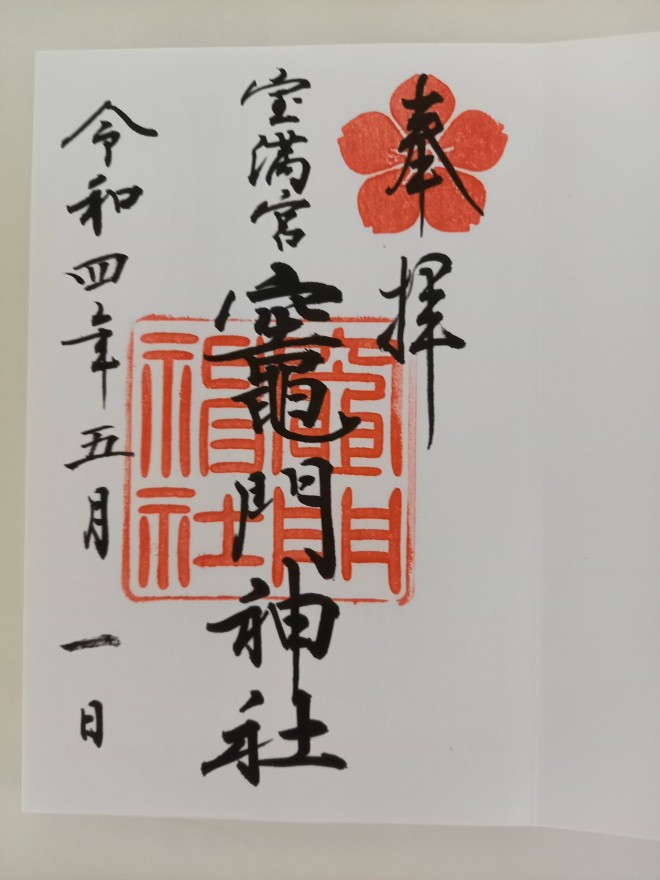 奉拝
宝満宮竈門神社
竈門神社
令和四年五月一日